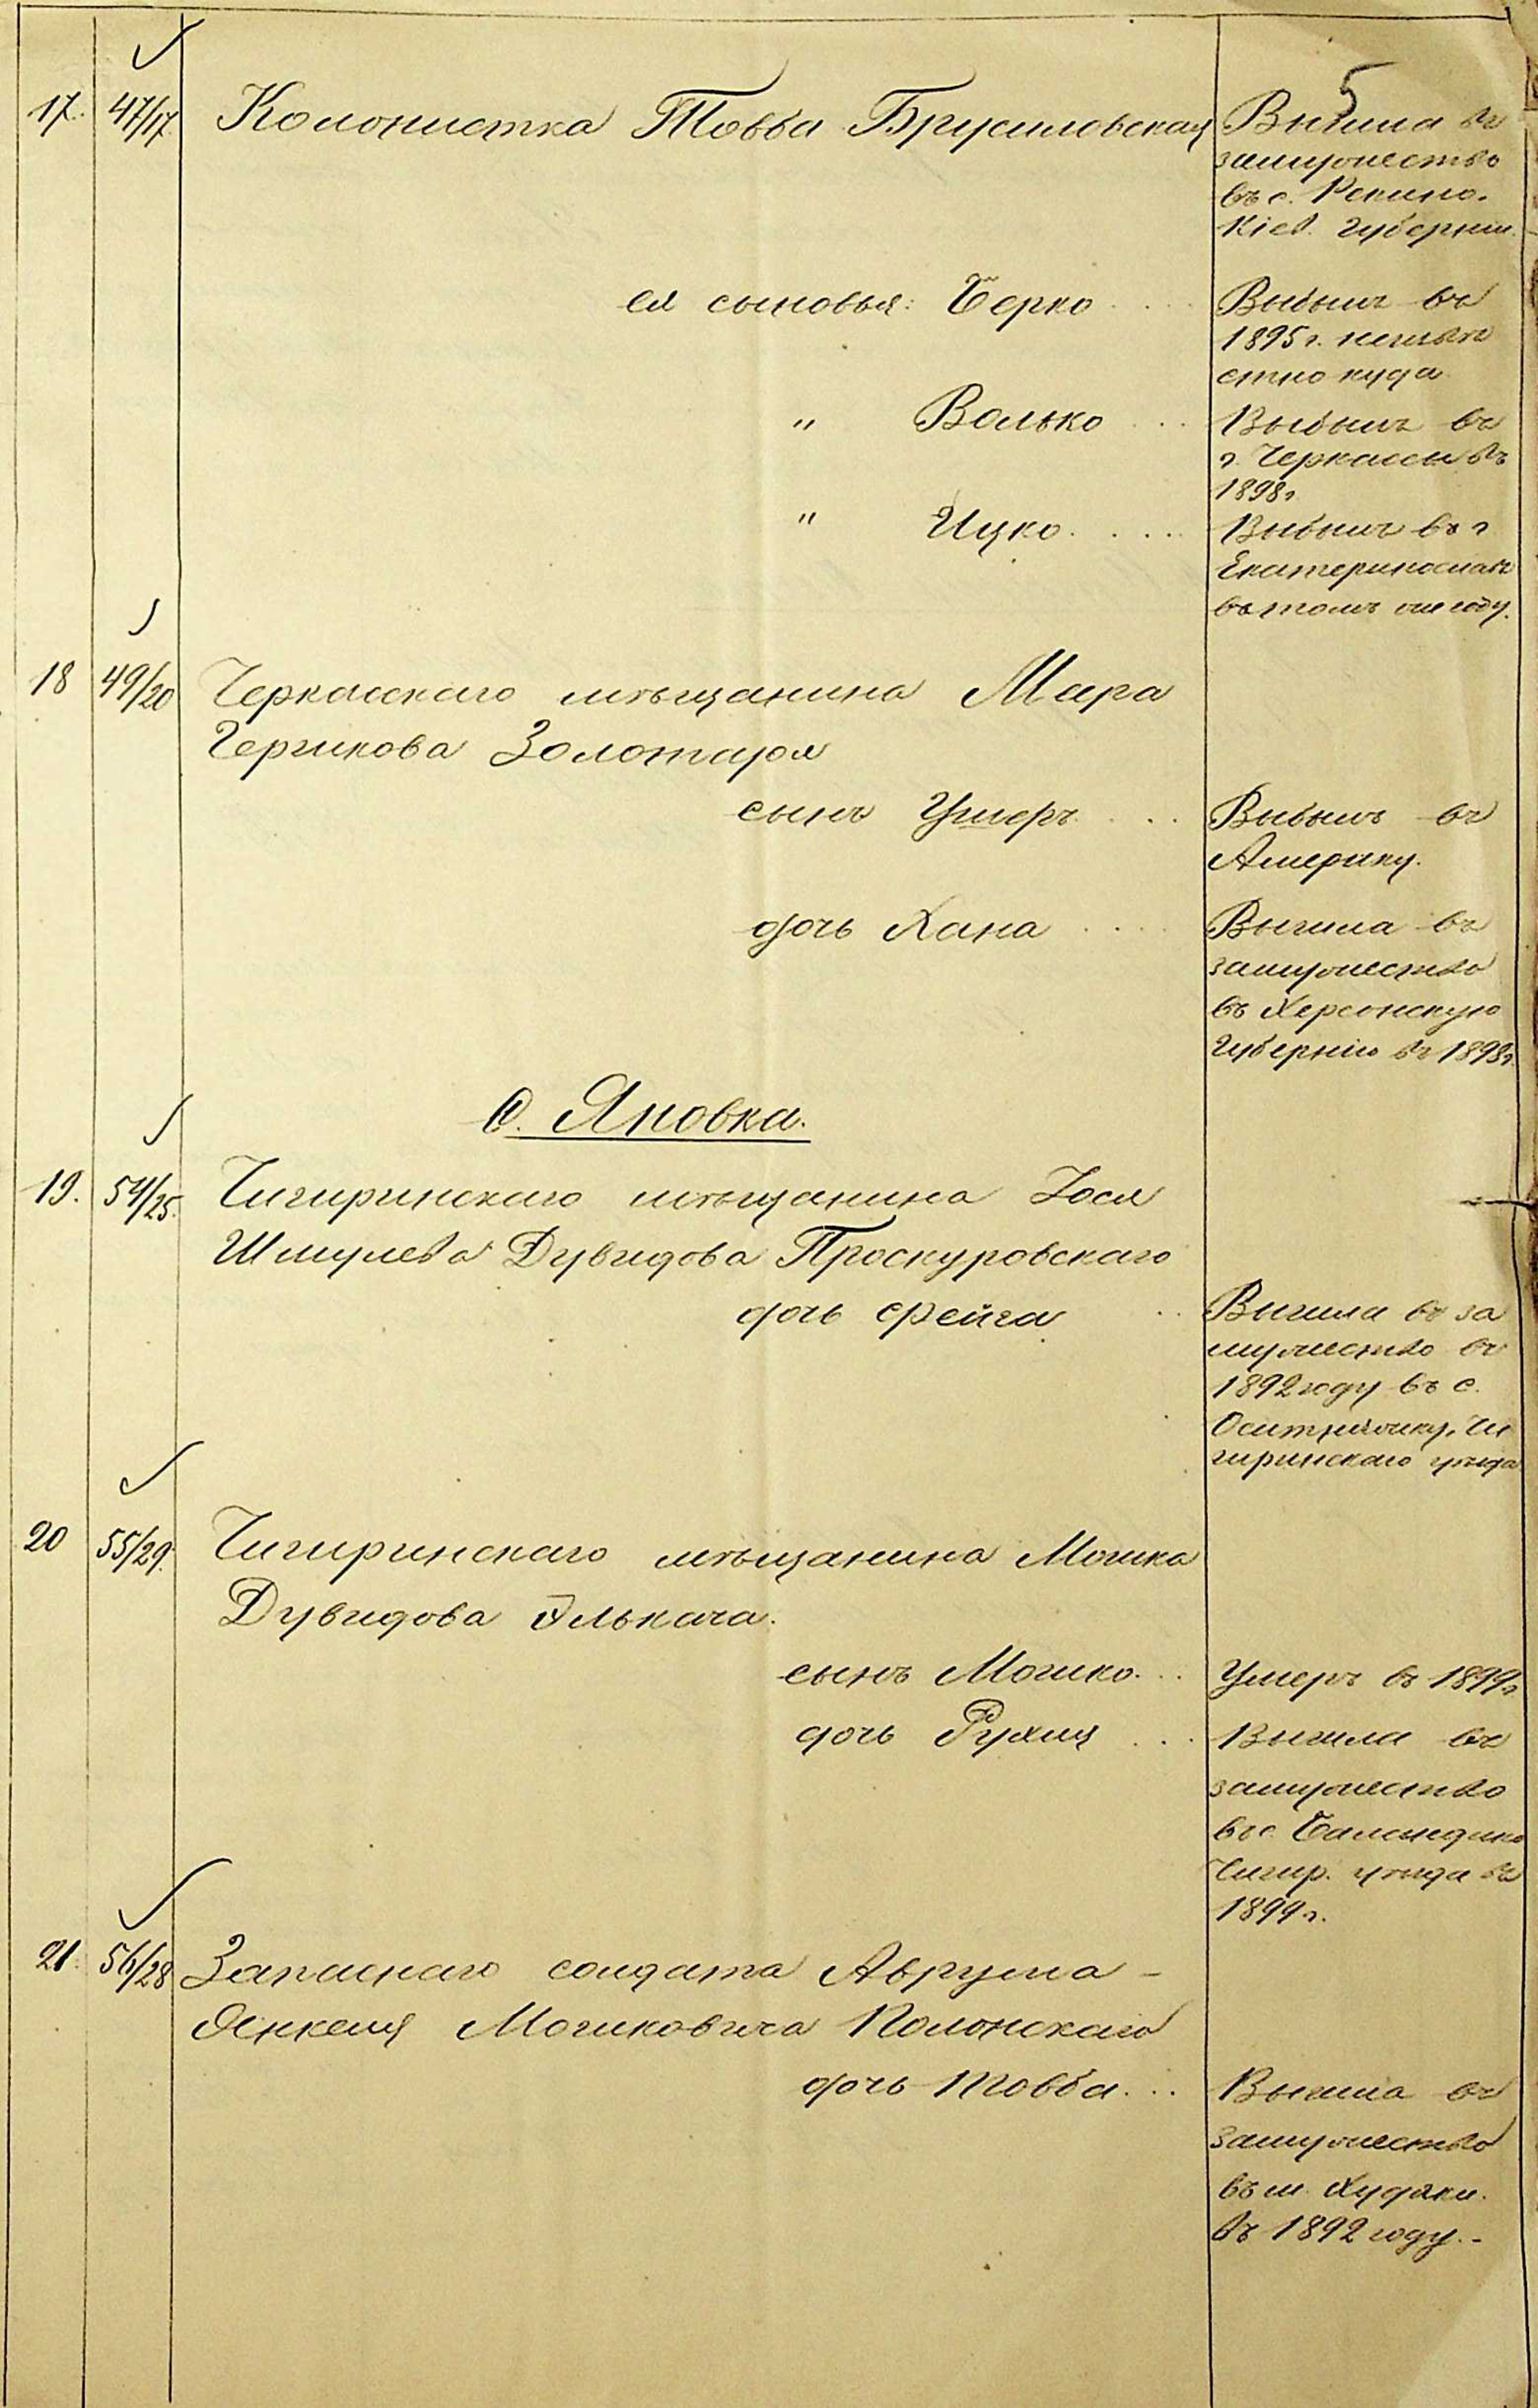 5
17. 47/17. Колонистка Товба Брусиловская Вышла въ
замужество
въ с. Репино.
Кіев. губерніи.
ея сыновья: Берко .... Выбылъ въ
1895 г. неизвѣ
стно куда
" Волько ... Выбылъ въ
г. Черкассы въ
1898 г
" Ицко. .... Выбылъ въ г
Екатеринославъ
въ томъ же году.
18 49/20 Черкасскаго мѣщанина Мара
Гершкова Золотаря
сынъ Ушеръ ... Выбылъ въ
Америку.
дочь Хана .... Вышла въ
замужество
въ Херсонскую
губернію въ 1898 г.
С. Яновка.
19. 54/25. Чигиринскаго мѣщанина Іося
Шмулева Дувидова Проскуровскаго
дочь Фейга .. Вышла въ за
мужество въ
1892 году въ с.
Чи
гиринскаго уѣзда
20 55/29. Чигиринскаго мѣщанина Мошка
Дувидова Элькача.
сынъ Мошко. .. Умеръ въ 1899 г
дочь Рухля ... Вышла въ
замужество
въ с. Баландино
Чигир. уѣзда въ
1899 г.
21. 56/28 Запаснаго солдата Аврума-
Янкеля Мошковича Полонскаго
дочь Товба. .. Вышла въ
замужество
въ м. Худяки.
въ 1892 году.-